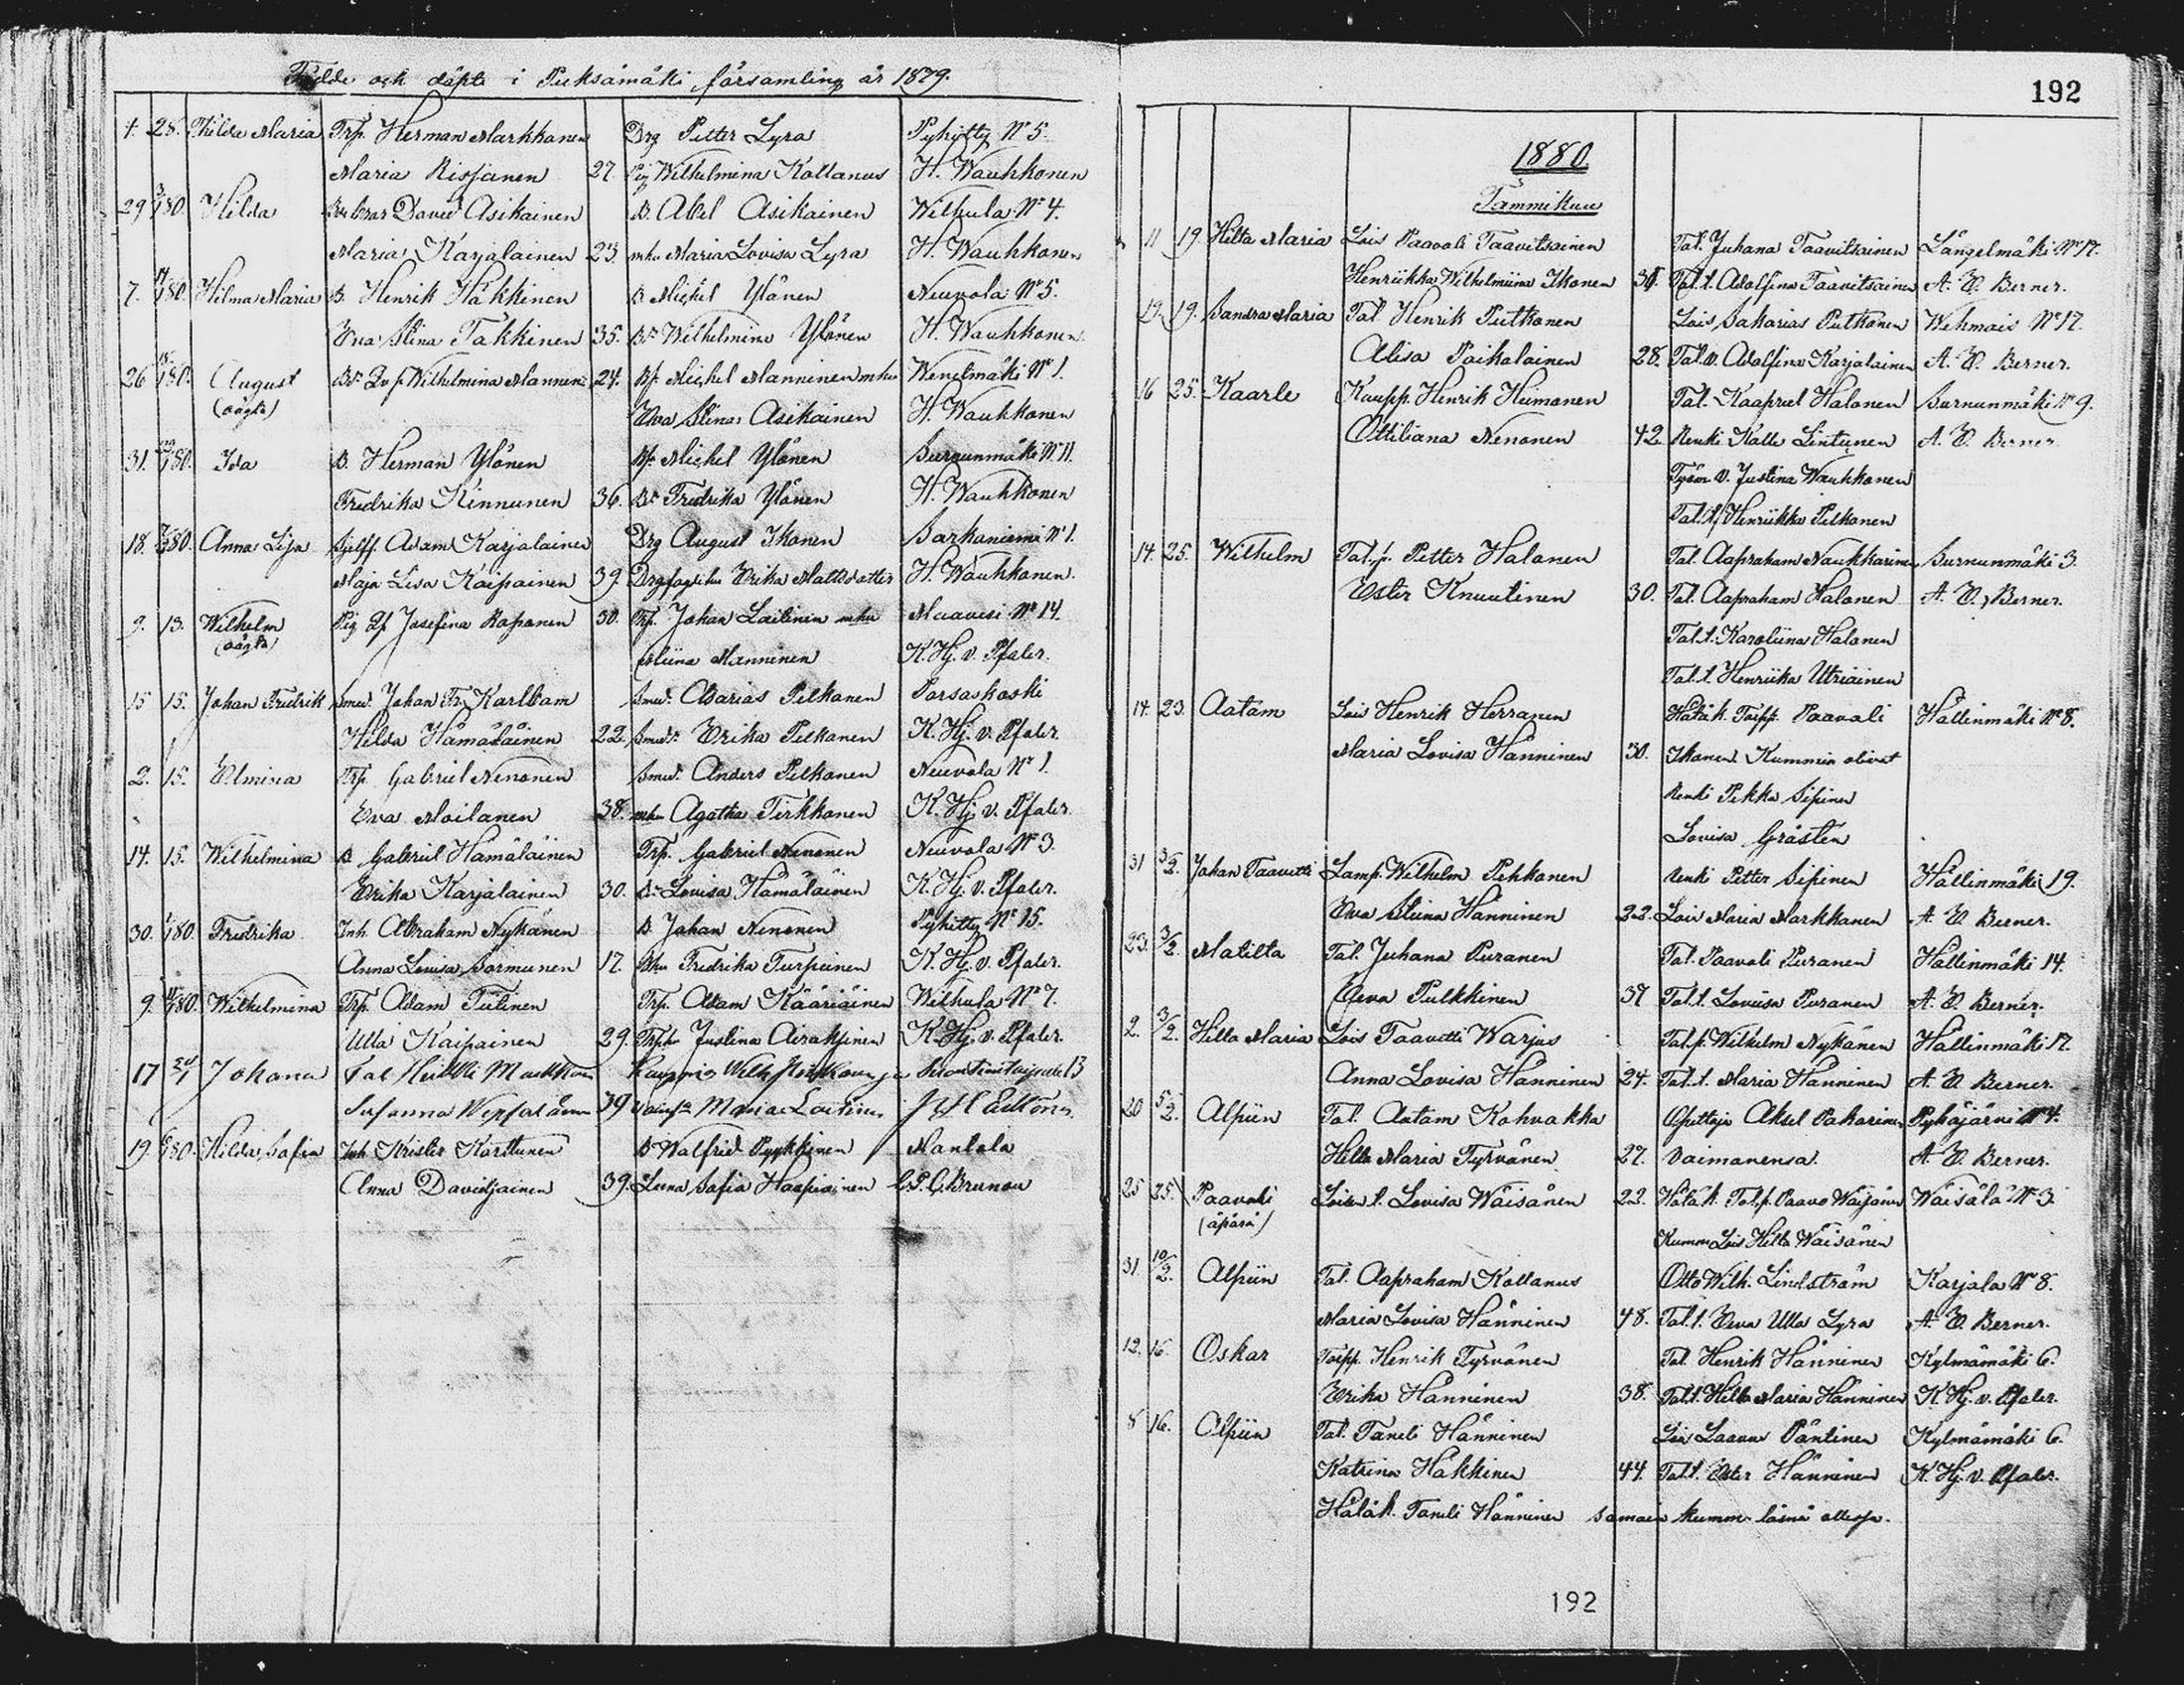 Födde och döpte i Pieksämäki församling år 1879.
4. 28. Hilda Maria Trp. Herman Markkanen Drg Petter Lyra Pyhitty Nº 5.
Maria Rissanen 27. Pig Wilhelmina Kollanus H. Wauhkonen
29 3/1 80. Hilda David Asikainen B. Abel Asikainen Wilhula Nº 4.
Maria Karjalainen 23. mhu Maria Lovisa Lyra H. Wauhkonen
7. 80. Hilma Maria B. Henrik Häkkinen B Michel Ylönen Neuvola Nº 5.
Eva Stina Takkinen 35. Bdr Wilhelmina Ylönen H. Wauhkonen
26 80. August Bdr Wilhelmina Manninen 24. Bf. Michel Manninen mhu Wenetmäki Nº 1.
(oägta) Eva Stina Asikainen H. Wauhkonen
31. 80. Ida B. Herman Ylönen Bf. Michel Ylönen Surnunmäki Nº 11.
Fredrika Kinnunen 36. Bdr Fredrika Ylönen H. Wauhkonen
18. 80 Anna Lisa Sjelff. Adam Karjalainen Drg August Ikonen Sarkaniemi Nº 1.
Maja Lisa Kaipainen 39. Erika Mattsdotter H. Wauhkonen.
9. 13. Wilhelm Pig Josefina Roponen 30. Trp. Johan Laitinen mhu Maavesi Nº 14.
(oägta) Miina Manninen K. Hj. v. Pfaler.
15 15. Johan Fredrik Smed. Johan Fr. Karlbom Smed. Asarias Pelkonen Porsaskoski
Hilda Hämäläinen 22. Erika Pelkonen K. Hj. v. Pfaler
2. 15. Elmina Trp. Gabriel Nenonen Smed. Anders Pelkonen Neuvola Nº 1.
Eva Moilanen 38. mhu Agatha Tirkkonen K. Hj. v. Pfaler.
14. 15. Wilhelmina B Gabriel Hämäläinen Trp. Gabriel Nenonen Neuvola Nº 3.
Erika Karjalainen 30. Bdr Lovisa Hämäläinen K. Hj. v. Pfaler.
30. 80. Fredrika Inh. Abraham Nykänen B Johan Nenonen Pyhitty Nº 15.
Anna Lovisa Sormunen 17. Bhu Fredrika Turpeinen K. Hj. v. Pfaler.
9. 80. Wilhelmina Trp. Adam Tiitinen Trp. Adam Kääriäinen Wilhula Nº 7.
Ulla Kaipainen 29. Trphu Justina Airaksinen K. Hj. v. Pfaler
17 Johana Tal Heikki Markkanen
Susanna 39 Maria Laitinen
19. 80. Hilda Sofia Inh Krister Karttunen B Walfrid Pyykkinen Mantola
Anna Davidjainen 39. Leena Sofia Haapiainen C. P. C. Brunou
192
1880
Tammikuu
11 19. Hilta Maria Lois Paavali Taavitsainen Tal. Juhana Taavitsainen Längelmäki Nº 17.
Henriikka Wilhelmiina Ikonen 36. Tal. t. Adolfina Taavitsainen A. E. Berner.
19. 19. Sandra Maria Tal. Henrik Putkonen Lois Sakarias Putkonen Wehmais Nº 17.
Alisa Poikolainen 28. Tal. v. Adolfina Karjalainen A. E. Berner.
16 25. Kaarle Kaupp. Henrik Himonen Tal. Kaapriel Halonen Surnunmäki Nº 9.
Ottiliana Nenonen 42. Renki Kalle Lintunen A. E. Berner
Työm. v. Justina Wauhkonen
Tal. t. Henriikka Pelkonen
14. 25. Wilhelm Tal. p. Petter Halonen Tal. Aapraham Naukkarinen Surnunmäki 3.
Ester Knuutinen 30. Tal. Aapraham Halonen A. E. Berner.
Tal. t. Karoliina Halonen
Tal. t. Henriika Utriainen
14. 23. Aatam Lois Henrik Herranen Hätäk. Torpp. Paavali Hällinmäki Nº 8.
Maria Lovisa Hänninen 30. Ikonen. Kummin olivat
Renki Pekka Sipinen
Lovisa Grästen
31 3/2. Johan Taavetti Lamp. Wilhelm Pekkanen Renki Petter Sipinen Hällinmäki 19.
Eva Stiina Hänninen 22. Lois Maria Markkanen A. E. Berner.
23. 3/2. Matilta Tal. Juhana Puranen Tal. Paavali Puranen Hällinmäki 14.
Eeva Pulkkinen 37 Tal. t. Loviisa Puranen A. E. Berner.
2. 3/2. Hilta Maria Lois Taavetti Warjus Tal. p. Wilhelm Nykänen Hällinmäki 17.
Anna Lovisa Hänninen 24. Tal. t. Maria Hänninen A. E. Berner.
20 5/2. Alpiin Tal. Aatam Kohvakka Opettaja Aksel Pakarinen Pyhäjärvi Nº 4.
Hilta Maria Tyrvänen 27. Vaimonensa. A. E. Berner.
25 25. Paavali Loisen t. Lovisa Wäisänen 22. Hätäk. Tal. p. Paavo Wäisänen Wäisälä Nº 3.
(äpärä) Kummi Lois Hilta Wäisänen
31. 10/2. Alpiin Tal. Aapraham Kollanus Otto Wilh. Lindström Karjala Nº 8.
Maria Lovisa Hänninen 48. Tal. t. Eeva Ulla Lyra A. E. Berner.
12. 16. Oskar Torpp. Henrik Tyrvänen Tal. Henrik Hänninen Kylmämäki 6.
Erika Hänninen 38. Tal. t. Hilta Maria Hänninen K. Hj. v. Pfaler.
8 16. Alpiin Tal. Taneli Hänninen Pöntinen Kylmämäki 6.
Katrina Häkkinen 44. Tal. t. Ester Hänninen K. Hj. v. Pfaler.
Hätäk. Taneli Hänninen
192